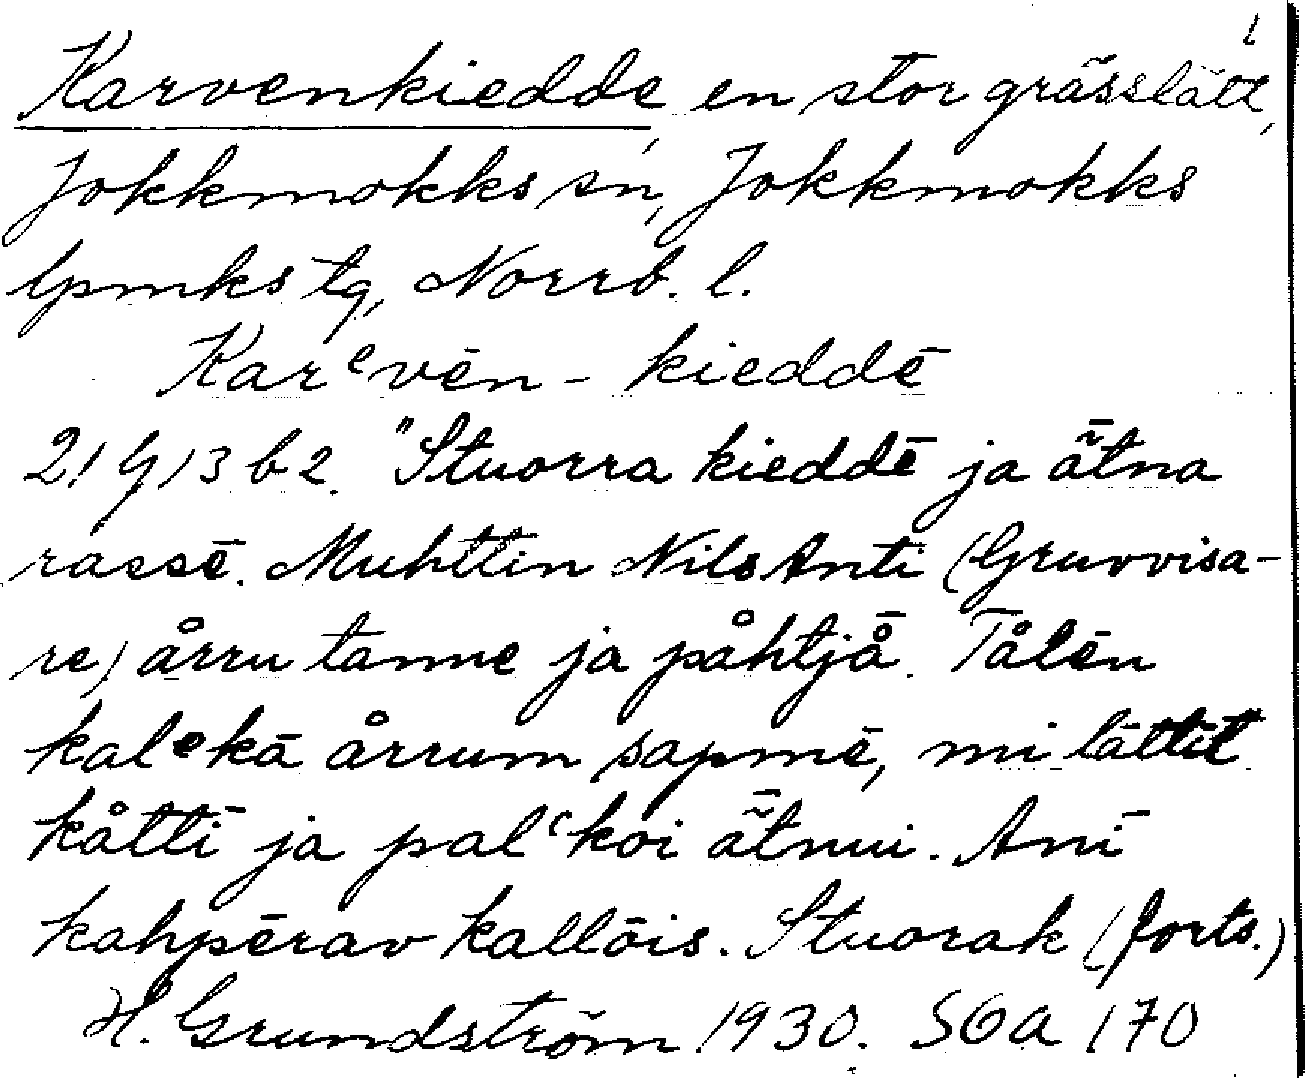 1
Karvenkiedde, en stor grässlätt,
Jokkmokks sn, Jokkmokks
lpmks tg, Norrb. l.
Karᵉvēn - kieddē
21 G 13 b 2. "Stuorra kieddē ja ä̃̄tna
rassē. Muhttin Nils Anti (Gruvvisa-
re) årru tanne ja påhtjā̊. Tålēn
kalᵉkā årrum sapmē, mi lāttit
kåttī ja palʿkoi ä̃̄tnui. Anī
kahpērav kallōis. Stuorak (forts.)
H. Grundström 1930. SOA 170